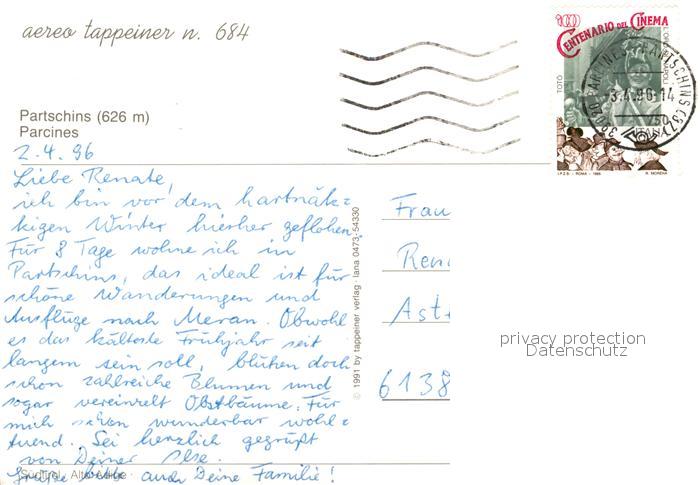 aereo tappeiner n. 684
100 CENTENARIO DEL CINEMA
L'ORO DI NAPOLI
TOTÒ
39020 PARTSCHINS (BZ)
-3.4.96-14
750
ITALIA
I.P.Z.S. - ROMA - 1995
Partschins (626 m)
Parcines
2.4.96
Liebe Renate,
ich bin vor dem hartnäk=
kigen Winter hierher geflohen.
Für 8 Tage wohne ich in
Partschins, das ideal ist für
schöne Wanderungen und
Ausflüge nach Meran. Obwohl
es das kälteste Frühjahr seit
langem sein soll, blühen doch
schon zahlreiche Blumen und
sogar vereinzelt Obstbäume. Für
mich schon wunderbar wohl=
tuend. Sei herzlich gegrüßt
von Deiner Ilse.
Grüße bitte auch Deine Familie!
Südtirol - Alto Adige
© 1991 by tappeiner verlag · lana 0473-54330
Frau
Ren
Ast
6138
privacy protection
Datenschutz